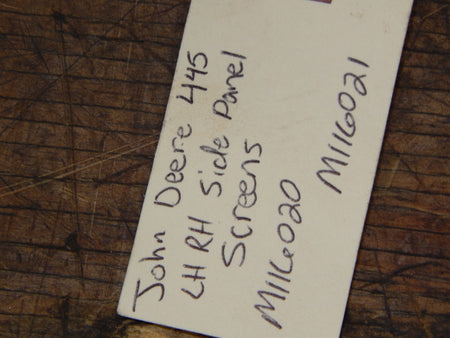 John Deere 445
LH RH Side Panel
Screens
M116020 M116021